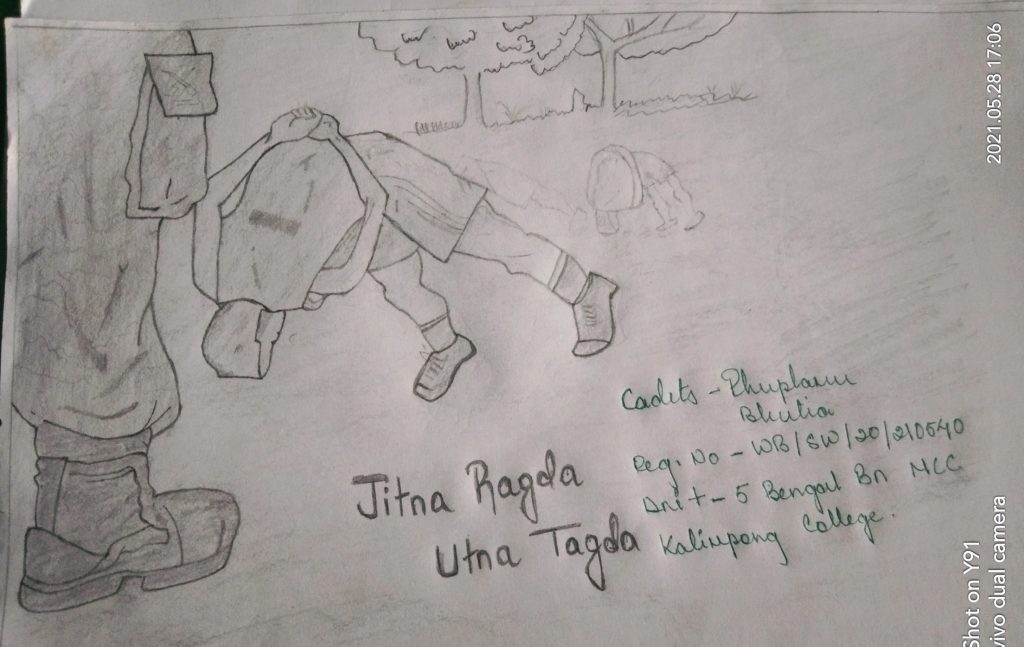 Jitna Ragda
Utna Tagda
Cadets -
Bhutia
Reg. No - WB/SW/20/210640
Unit - 5 Bengal Bn NCC
Kalimpong College.
2021.05.28 17:06
Shot on Y91
vivo dual camera